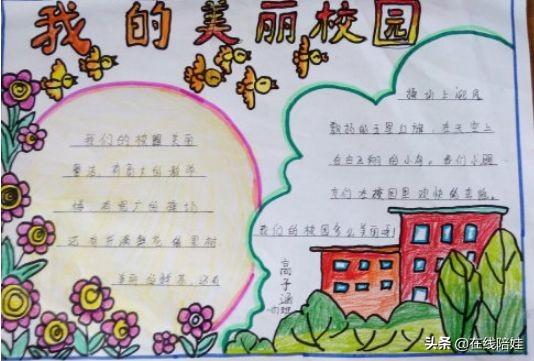 我的美丽校园
我们的校园美丽
整洁，有高大的教学
楼，有宽广的操场
还有开满鲜花的果树
美丽的鲜花，还有
操场上
飘扬的五星红旗，在天空上
有自由飞翔的小鸟。我们小朋
友们在校园里欢快的
我们的校园多么美丽呀！
高子涵
一班
头条 @在线陪娃